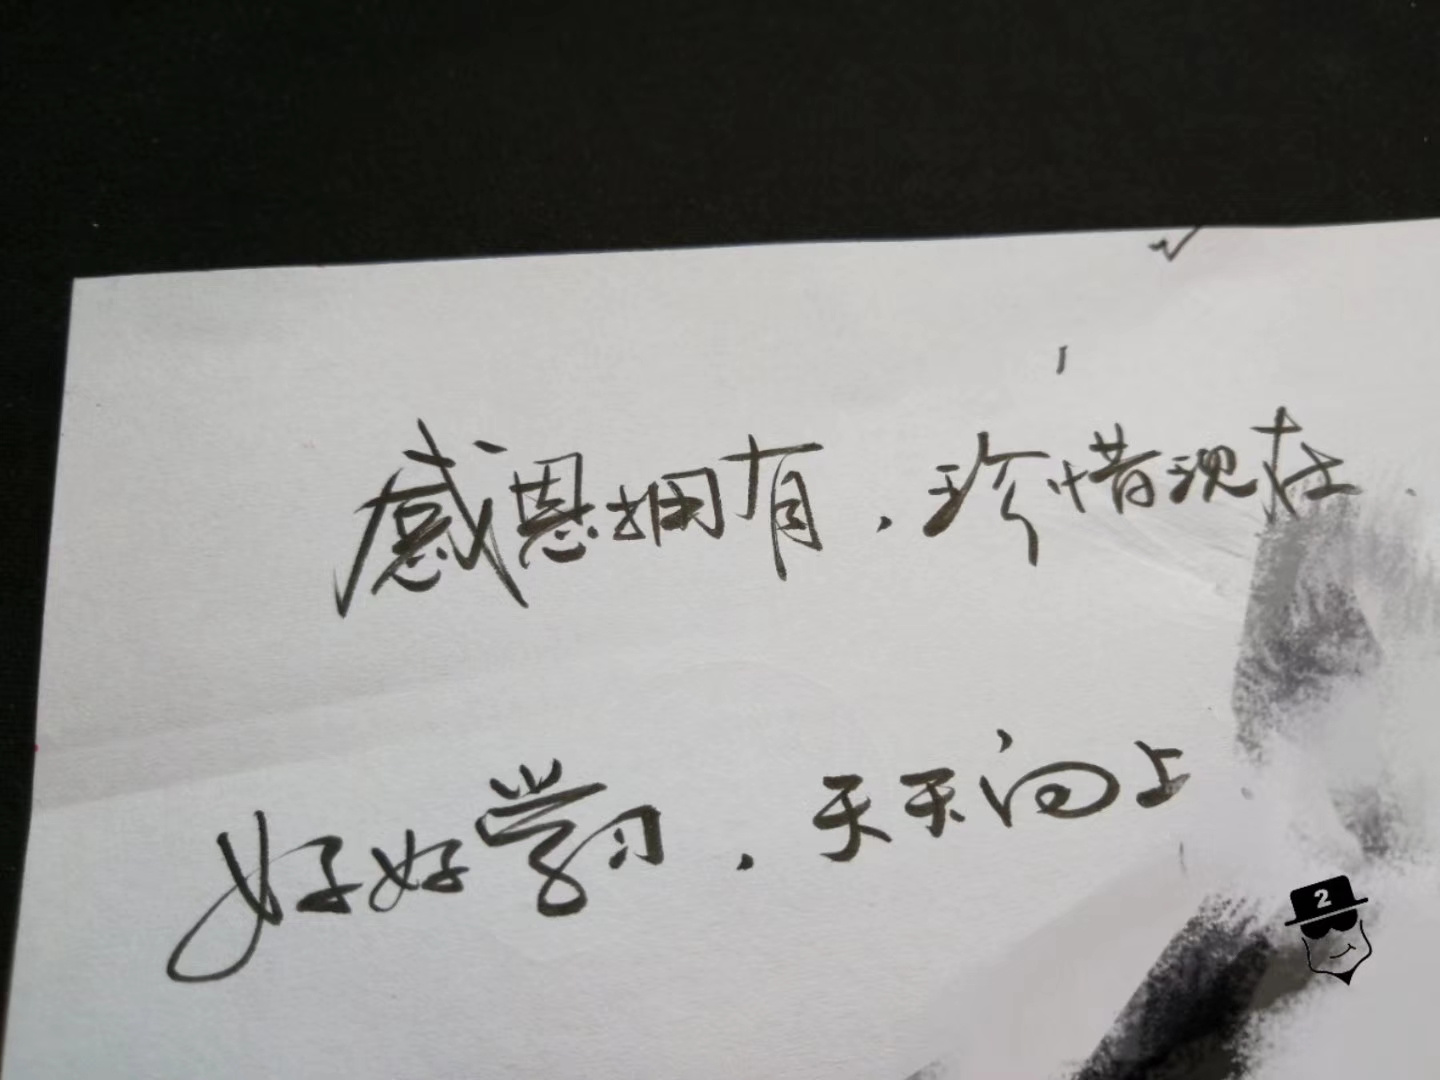 感恩拥有，珍惜现在.
好好学习，天天向上.
2